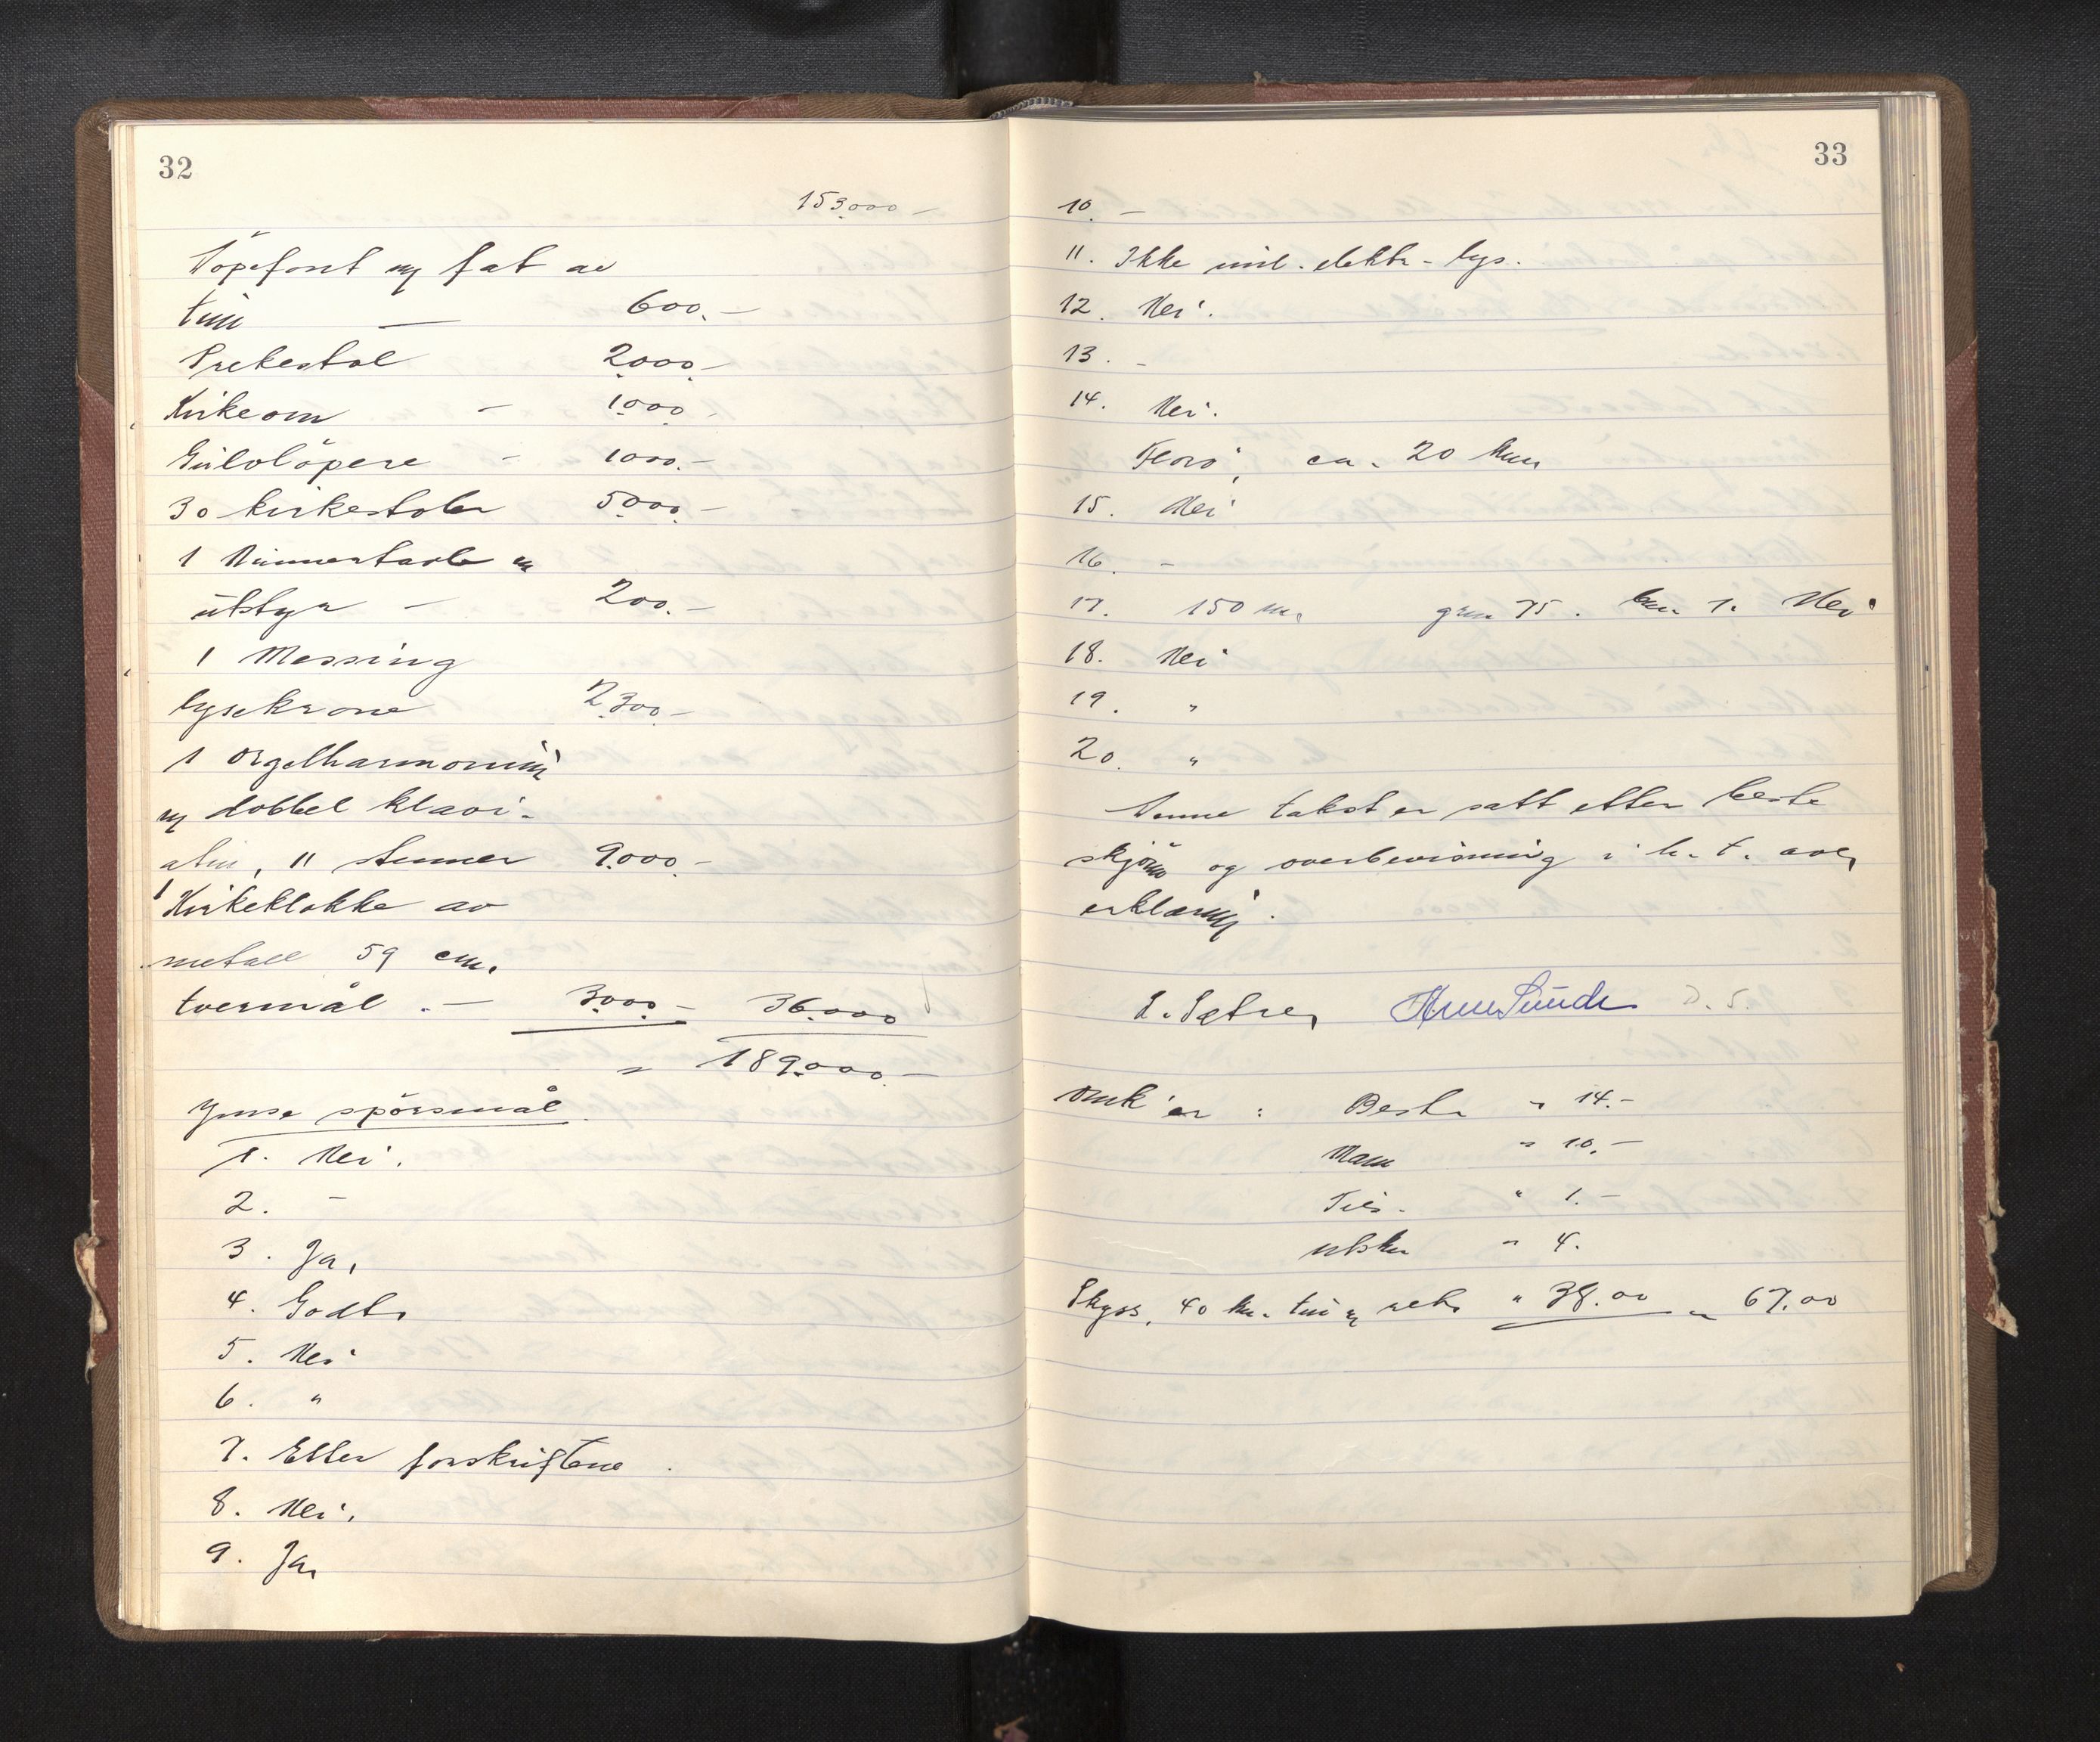 32
153.000 –
Döpefont m/ fat av
tinn — 600.–
Prekestol 2000.–
Kirkeovn – 1.000.–
Gulvlöpere – 1000.–
30 kirkestoler 5.000.–
1 Nummertavle m
utstyr – 200.–
1 Messing
lysekrone 2.300.–
1 Orgelharmonium
m/ dobbel klavi-
atur, 11 stemmer 9.000.–
1 Kirkeklokke av
metall 59 cm.
tvermål. – 3.000.– 36.000
" 189.000.–
Ymse spörsmål.
1. Nei.
2. –
3. Ja,
4. Godt.
5. Nei
6. "
7. Etter forskriftene.
8. Nei.
9. Ja,
33
10. –
11. Ikke innl. elektr-lys.
12. Nei.
13. –
14. Nei.
Florö, ca. 20 km
15. Nei
16. –
17. 150 m. 75. 1. Nei
18. Nei
19. "
20. "
Denne takst er satt etter beste
skjönn og overbevisning i h. t. avg,
erklæring.
L. Sætre, Sunde D. S.
Omk'er : Best. " 14.–
Mann " 10.–
Tils. " 1.–
utskr " 4.
Skyss, 40 km. tur m retur " 38.00 " 67.00